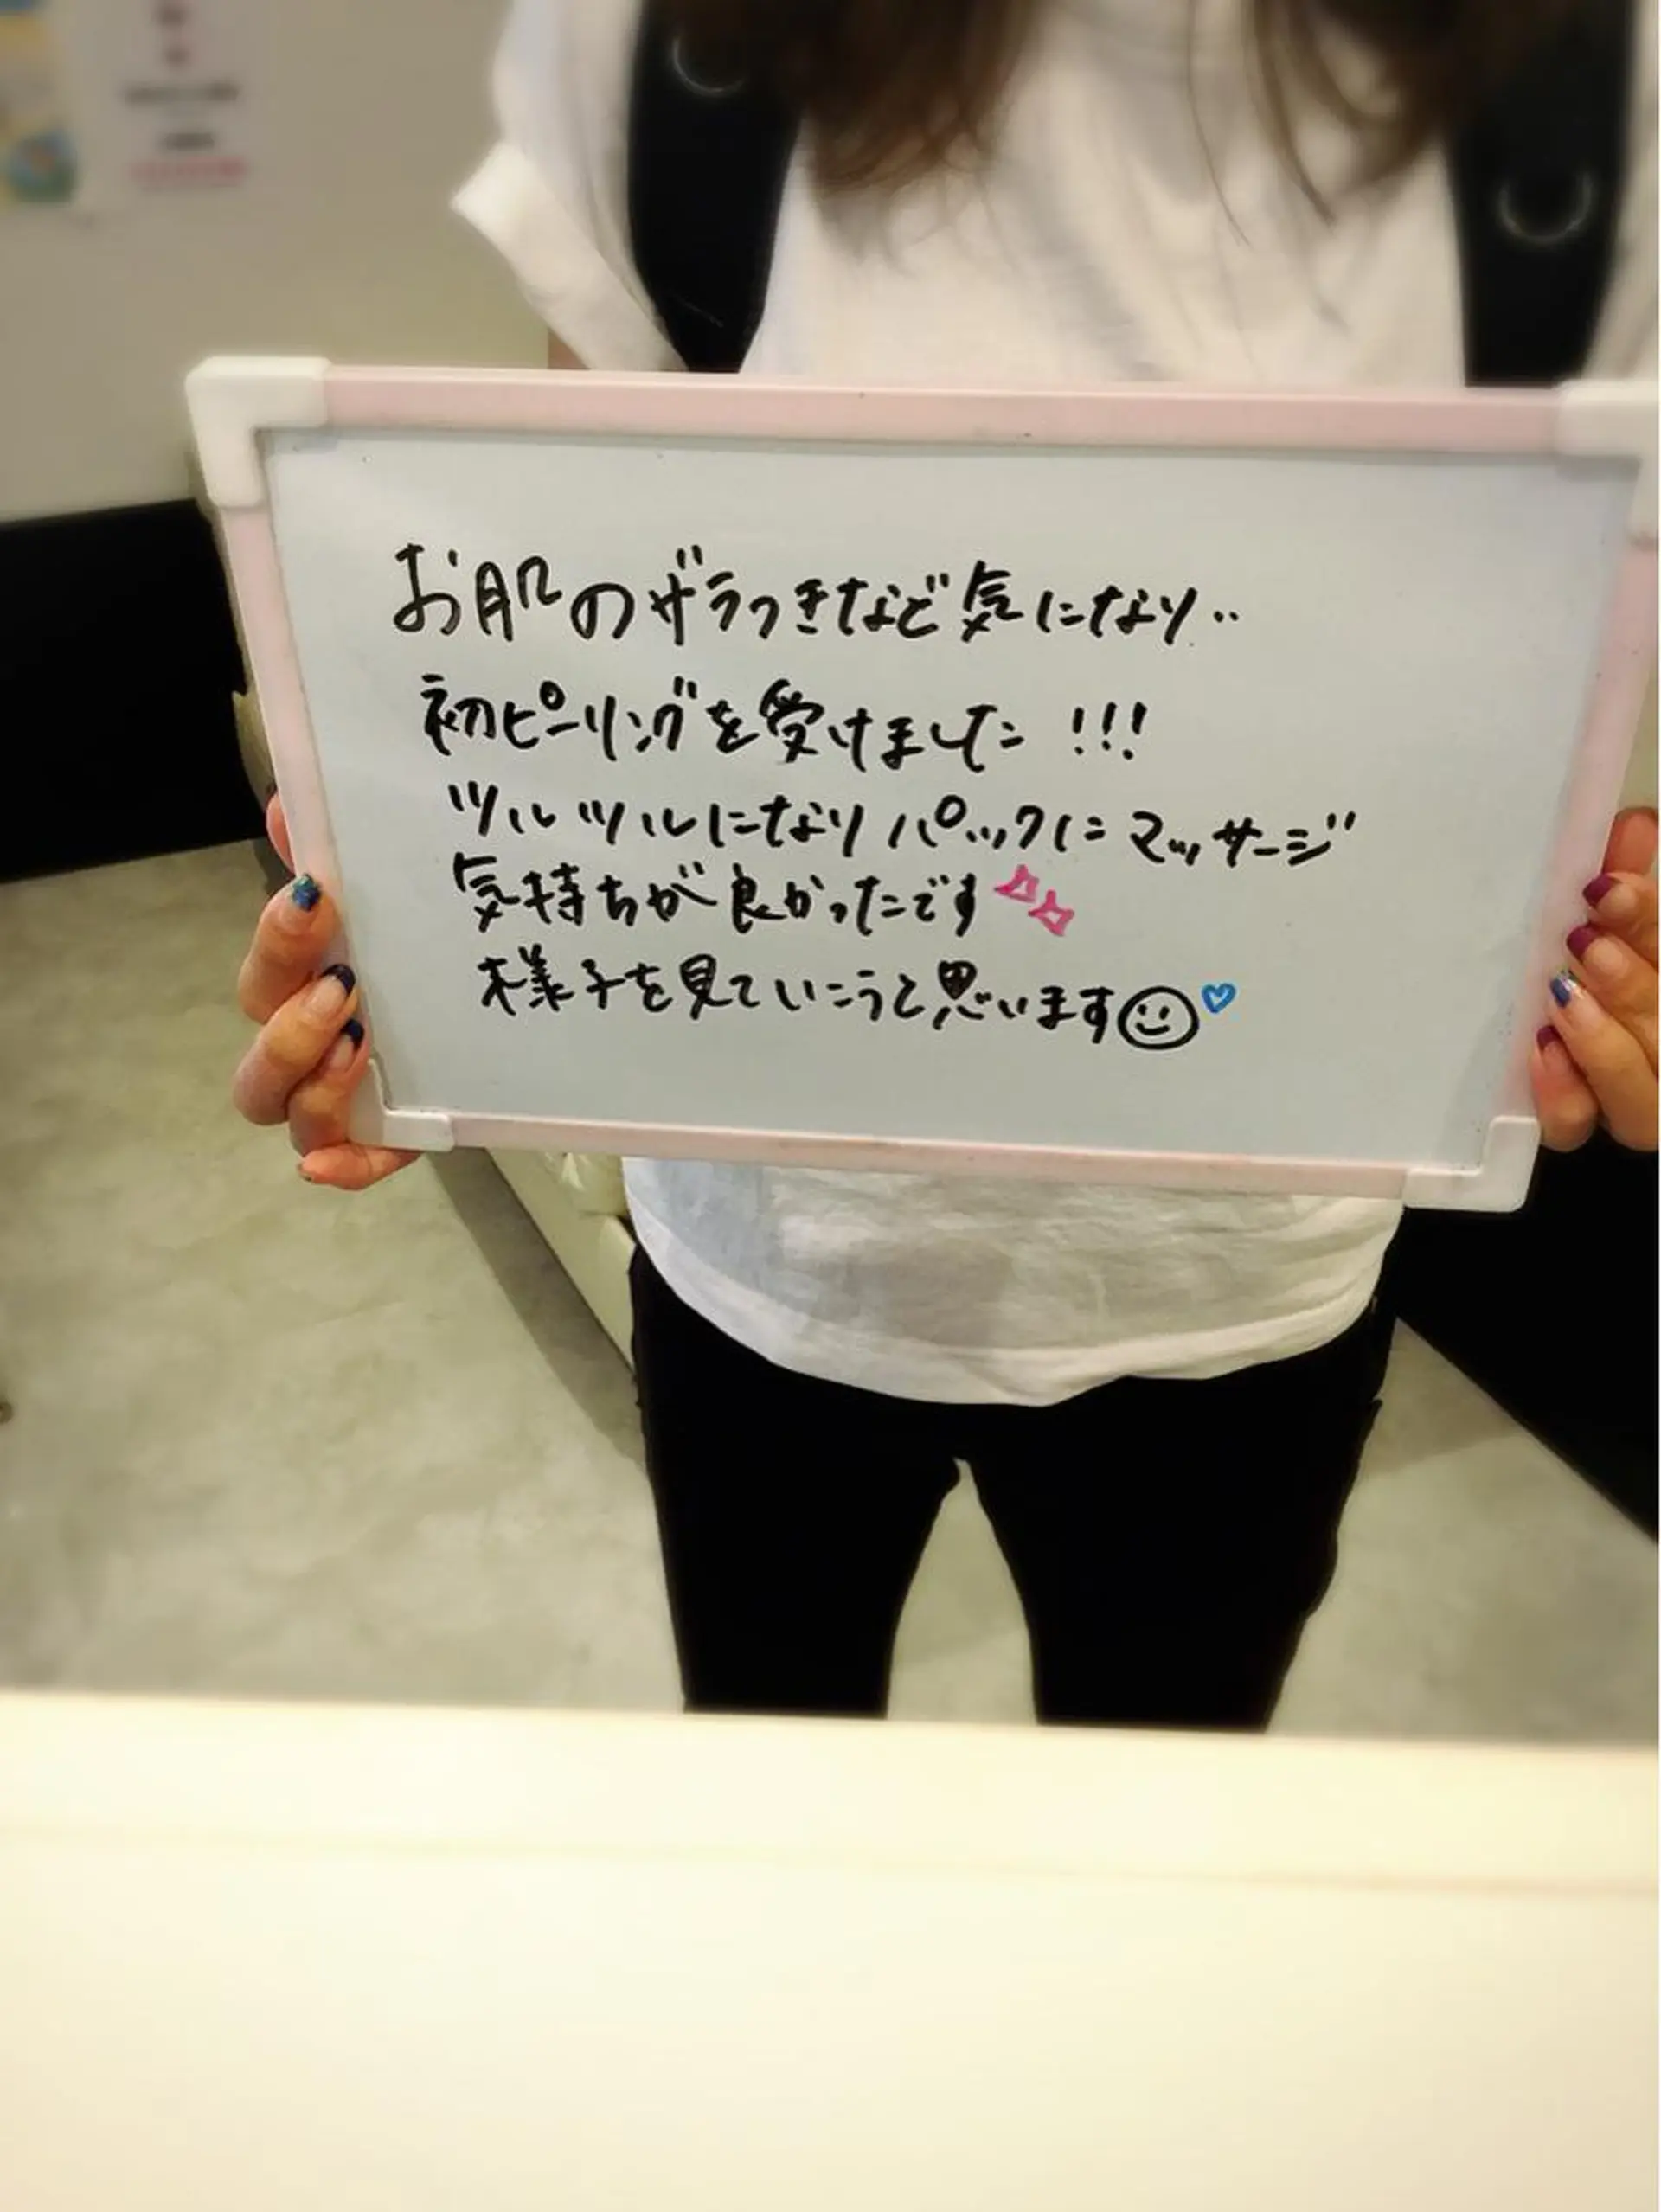 お肌のザラつきなど気になり..
初ピーリングを受けました!!!
ツルツルになりパックにマッサージ
気持ちが良かったです
様子を見ていこうと思います